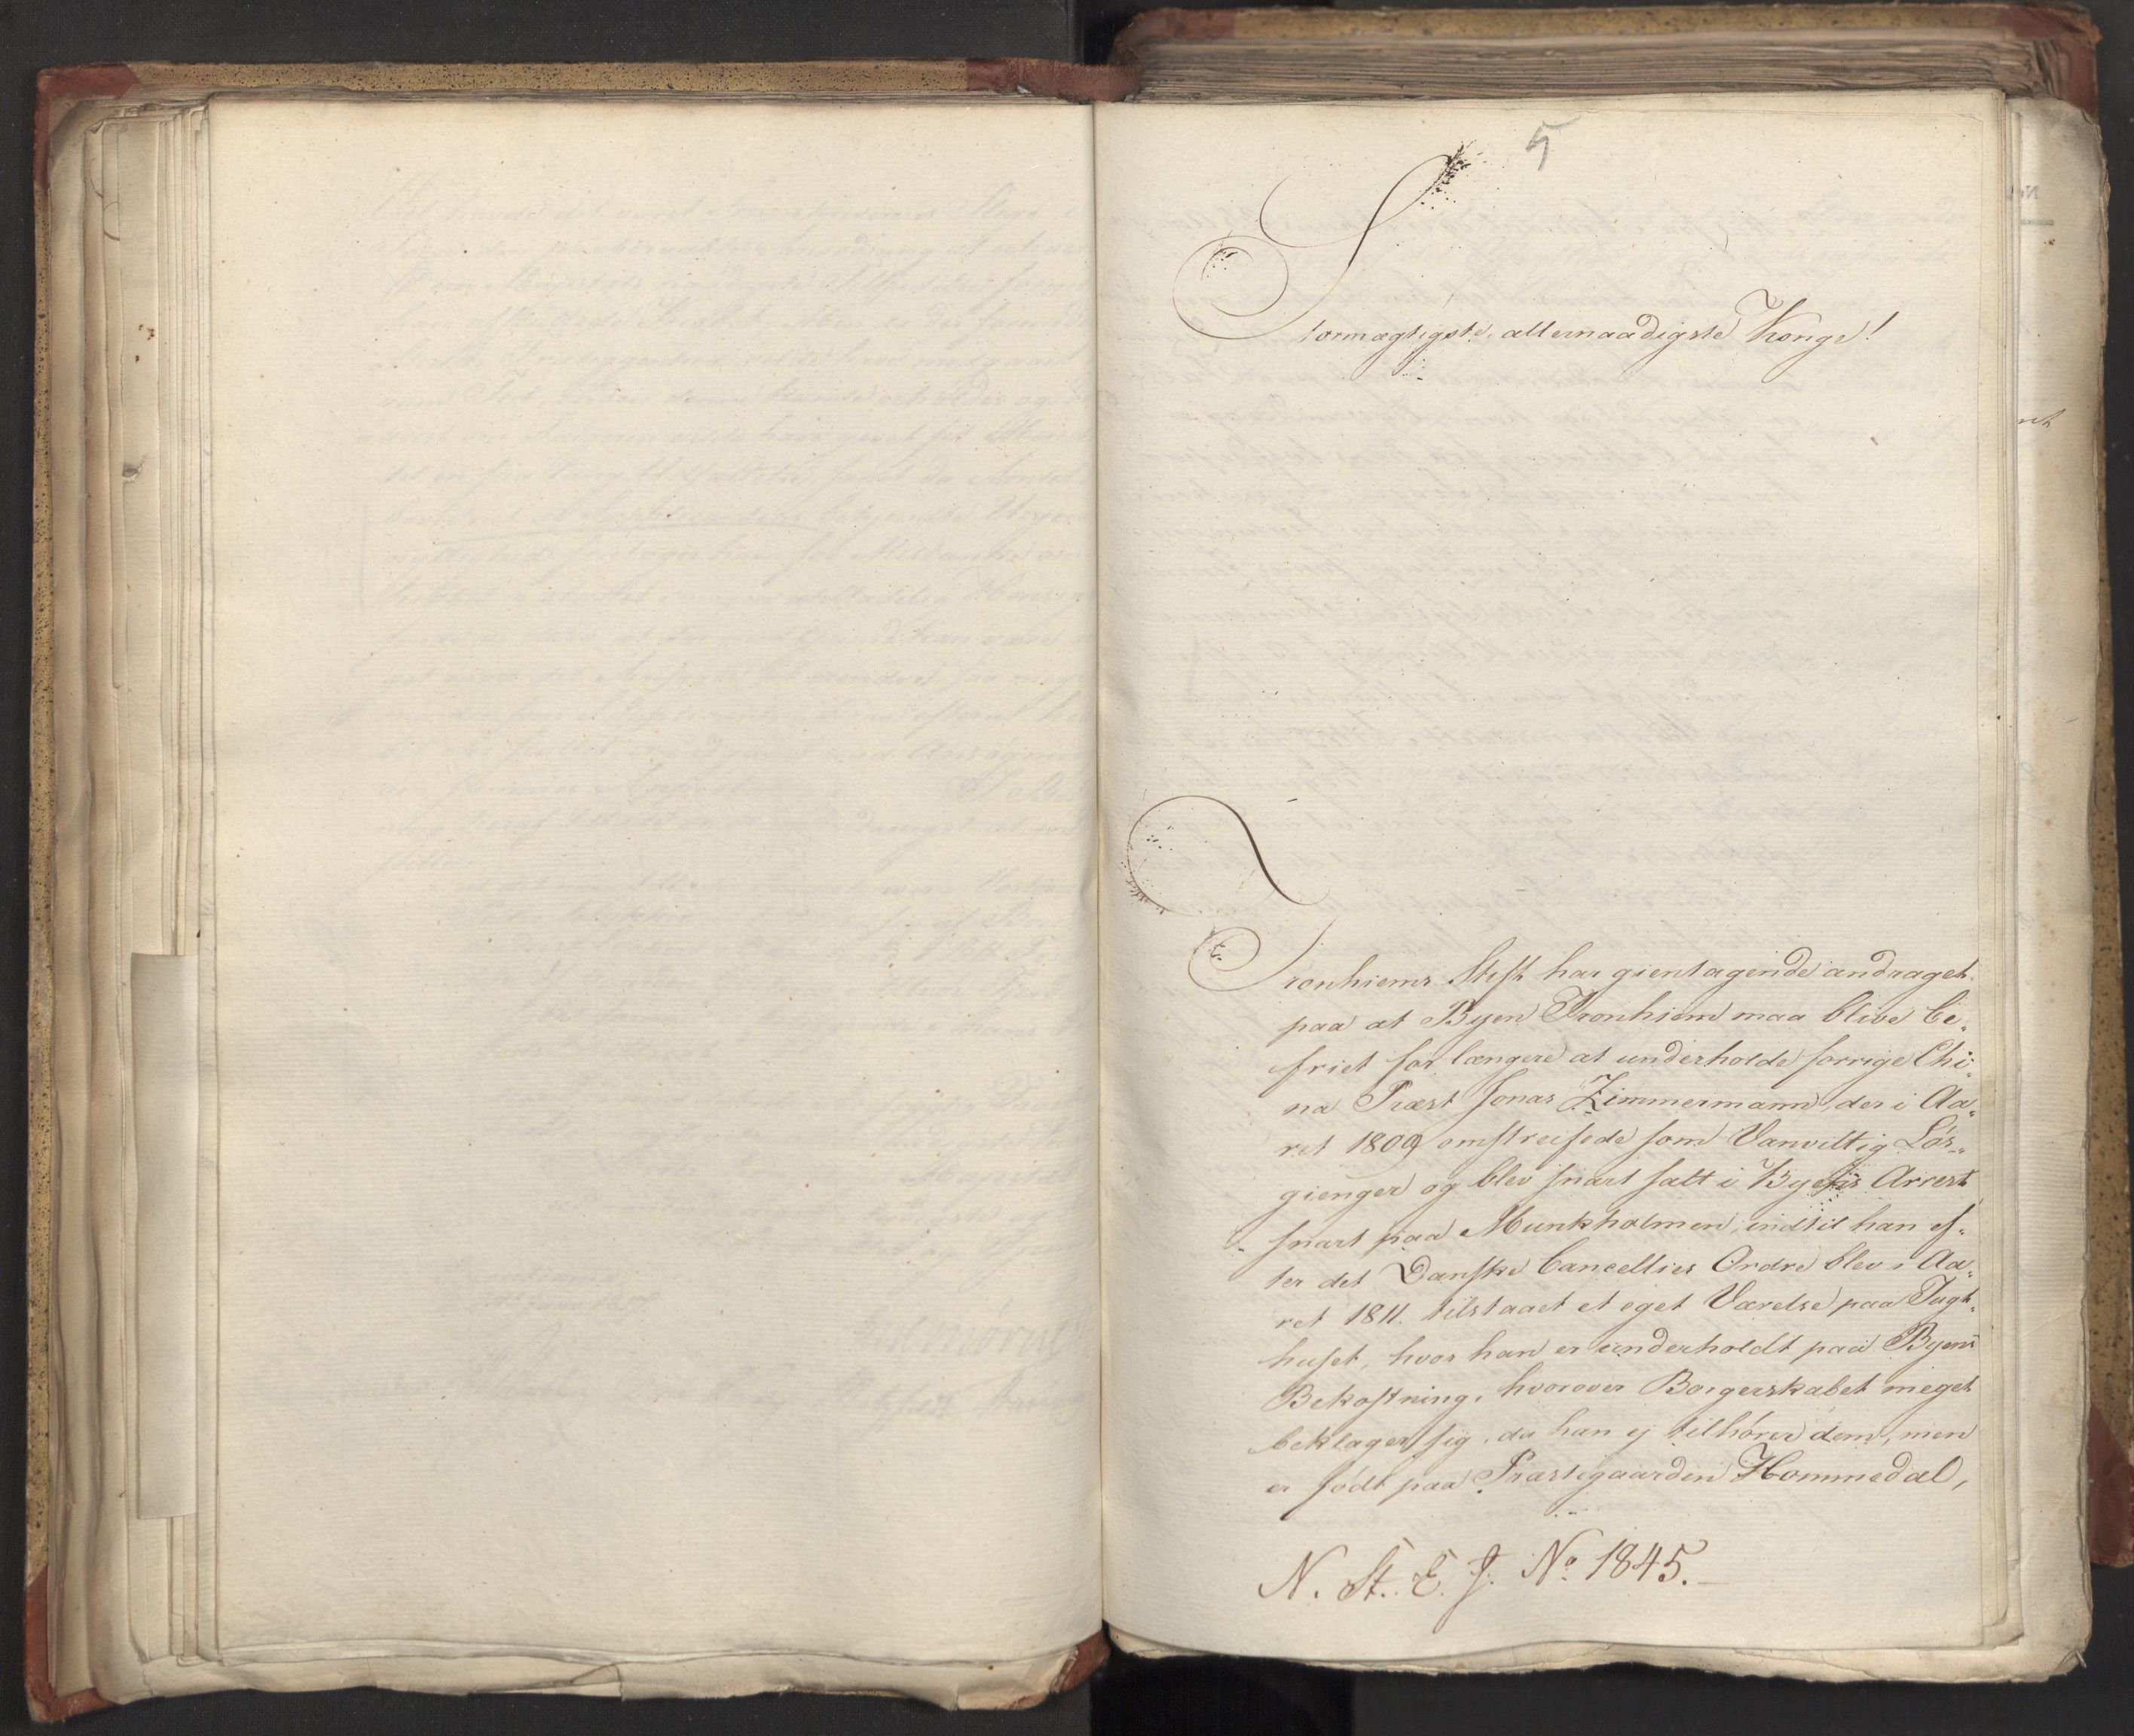 5
Stormægtigste, allernaadigste Konge!
Tronhiems Stift har gientagende andraget
paa at Byen Tronhiem maa blive be„
friet for længere at underholde forrige Chi„
na Præst Jonas Zimmermann, der i Aa„
ret 1809 omstreifede som Vanvittig Løs„
gienger og blev snart satt i Byens Arrest
snart paa Munkholmen, indtil han ef„
ter det Danske Cancellies Ordre blev i Aa„
ret 1811. tilstaaet et eget Værelse paa Tugt„
huset, hvor han er underholdt paa Byens
Bekostning, hvorover Borgerskabet meget
beklager sig, da han ej tilhører dem, men
er født paa Præstegaarden Hommedal,
N. St. E. J. No 1845.